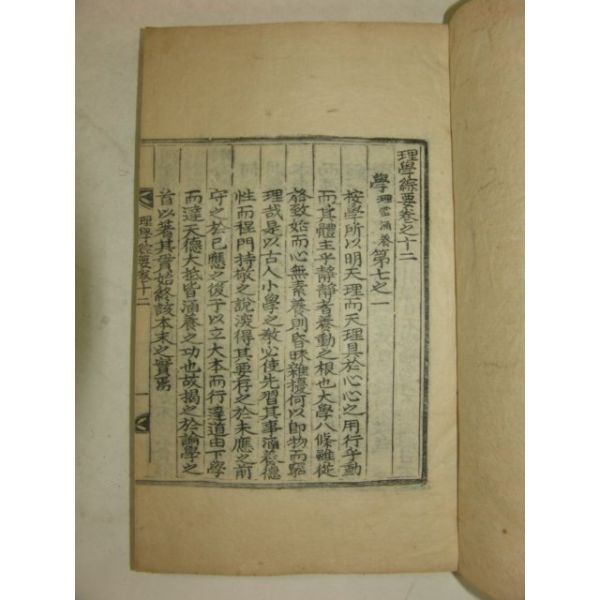 理學綜要卷之十二
學 理當涵養 第七之一
按學所以明天理而天理具於心心之用行乎動
而其體主乎靜靜者養動之根也大學八條雖從
格致始而心無素養則昏昧雜擾何以即物而窮
理哉是以古人小學之教必使先習其事涵養德
性而程門持敬之說深得其要存之於未應之前
守之於已應之後于以立大本而行達道由下學
而達天德大抵皆涵養之功也故揭之於論學之
首以著其貫始終該本末之實焉
理學綜要卷十二
一